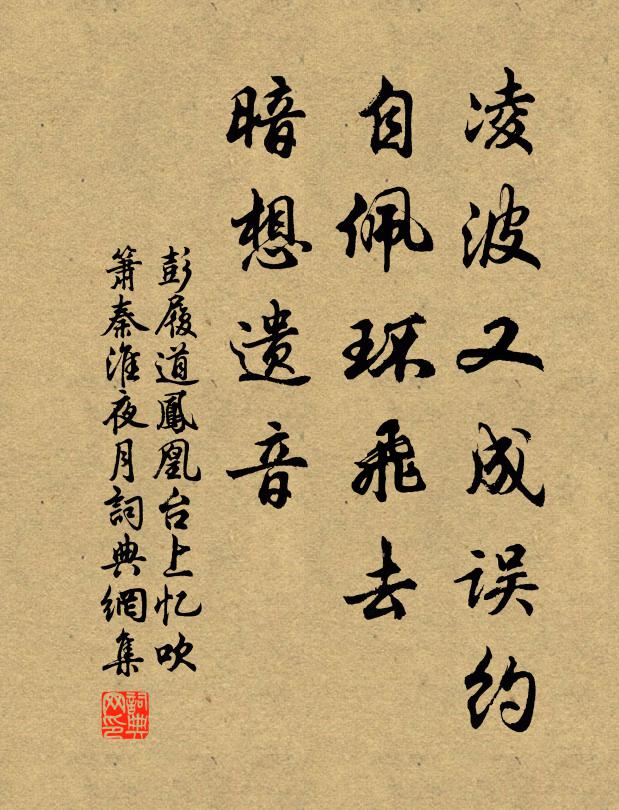 凌波又成误约
自佩环飛去
暗想遗音
彭履道鳳凰台上忆吹
箫秦淮夜月詞典網集
詞典
网印